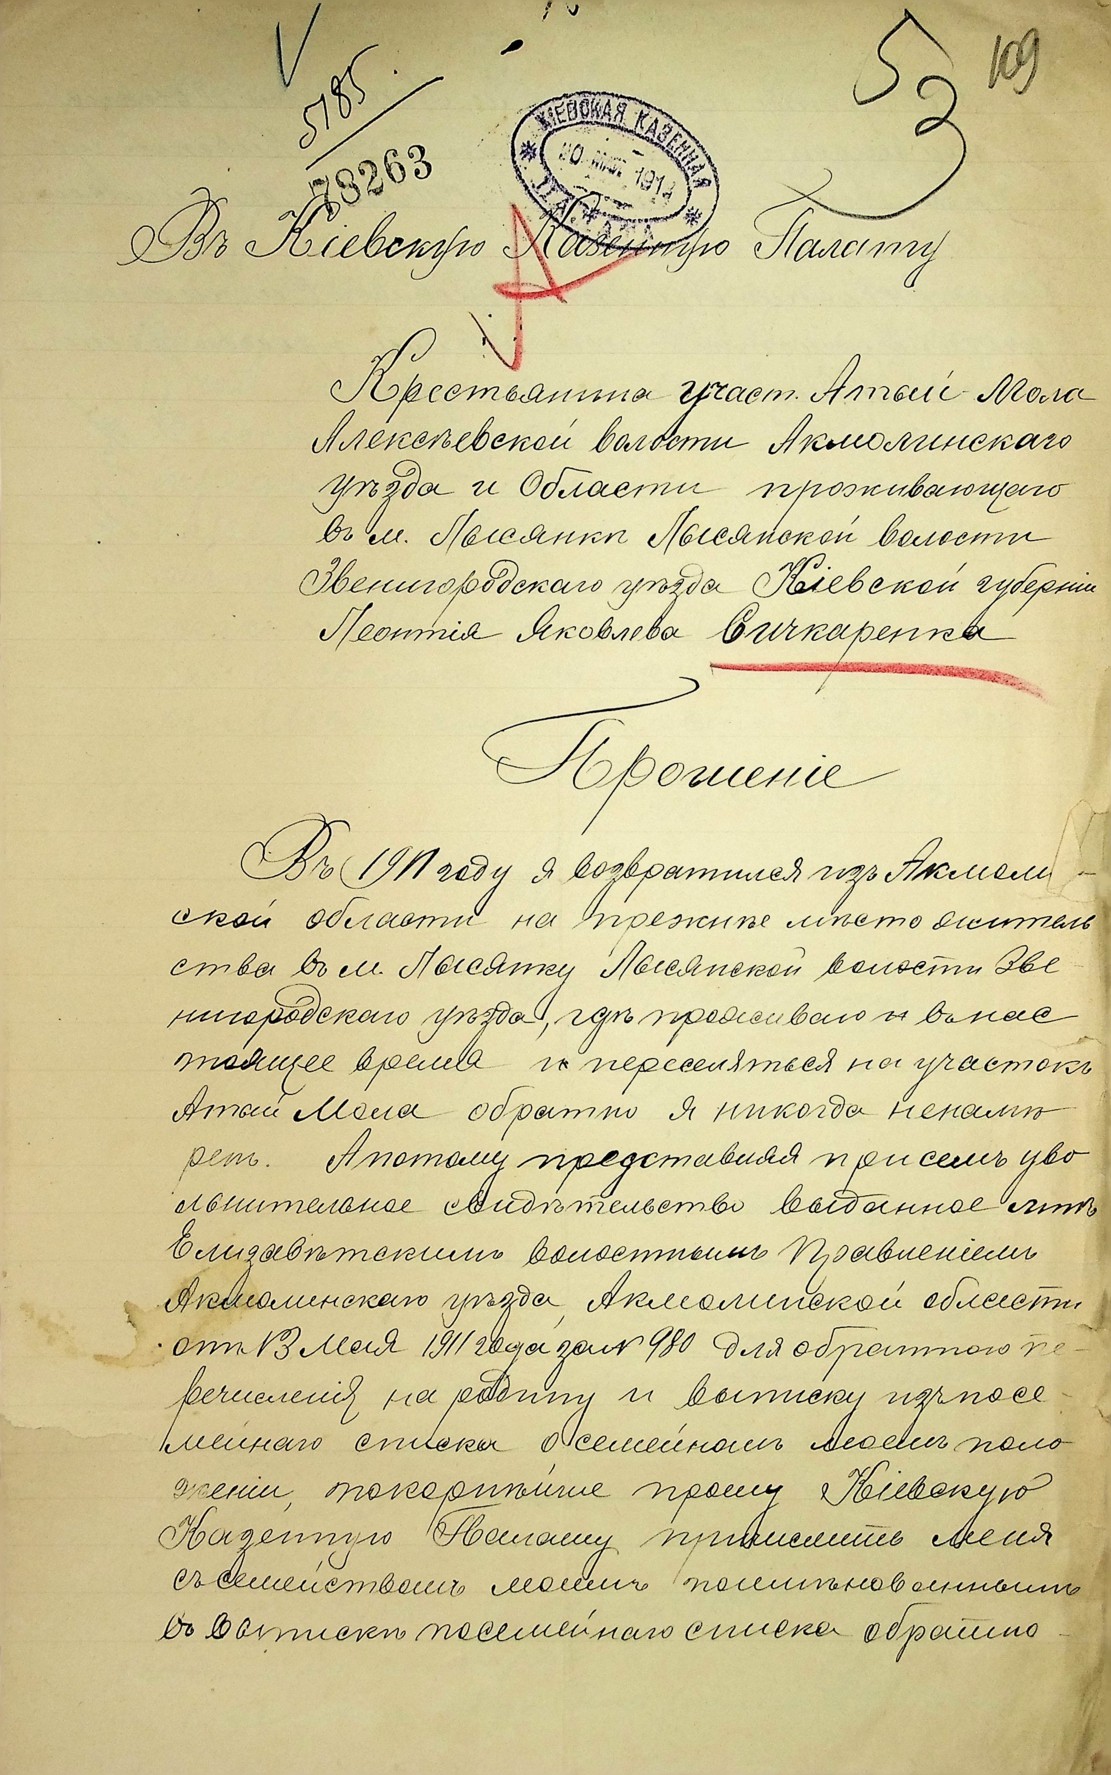 53
109
5185
78263
КІЕВСКАЯ КАЗЕННАЯ
ПАЛАТА
Въ Кіевскую Казенную Палату
Крестьянина участ. Атай-Мола
Алексѣевской волости Акмолинскаго
уѣзда и Области проживающаго
въ м. Лысянкѣ Лысянской волости
Звенигородскаго уѣзда Кіевской губерніи
Леонтія Яковлева Сичкаренка
Прошеніе
Въ 1911 году я возвратился изъ Акмолин-
ской области на прежнѣе мѣсто житель
ства въ м. Лысянку Лысянской волости Зве-
нигородскаго уѣзда, гдѣ проживаю и въ нас
тоящее время и переселяться на участокъ
Атай Мола обратно я никогда ненамѣ
ренъ. Апотому представляя присемъ уво
льнительное свидѣтельство выданное мнѣ
Елизаветскимъ волостнымъ Правленіемъ
Акмолинскаго уѣзда, Акмолинской области
отъ 13 Мая 1911 года за № 980 для обратного пе-
речисленія на родину и выписку изъ посе-
мейнаго списка о семейномъ моемъ поло
женіи, покорнѣйше прошу Кіевскую
Казенную Палату причислить меня
съ семействомъ моимъ поименованнымъ
въ выпискѣ посемейнаго списка обратно-